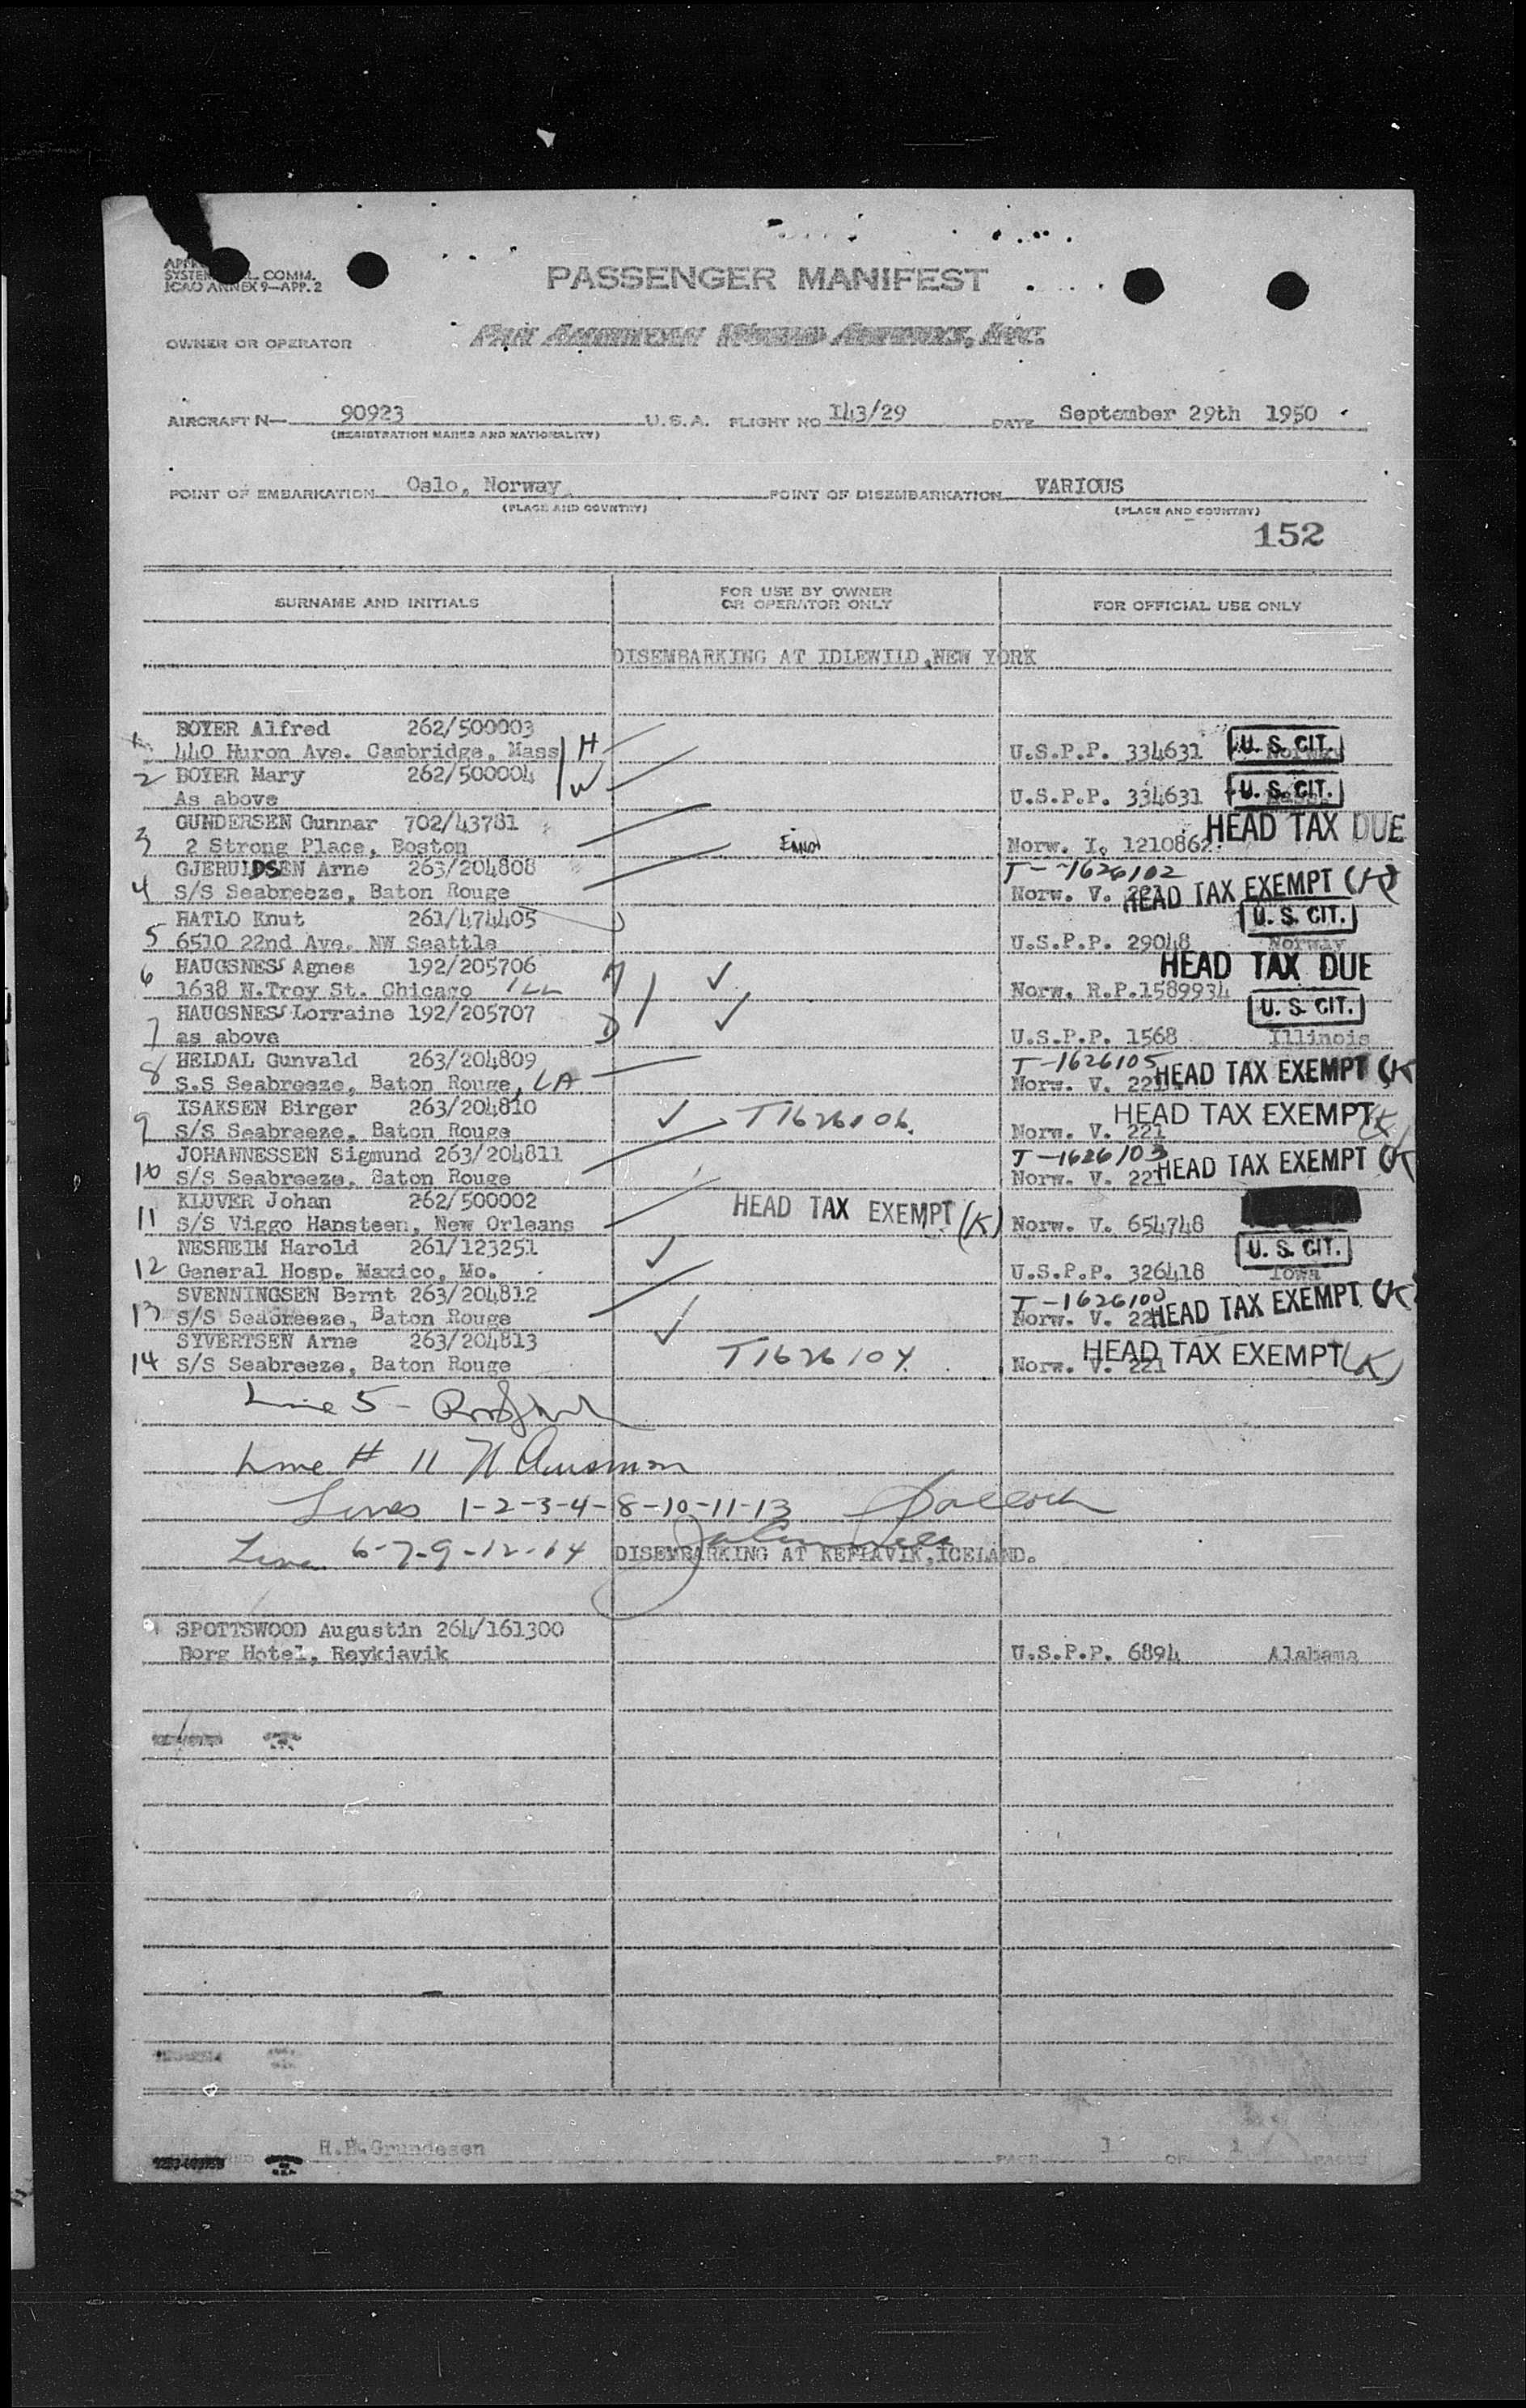 PASSENGER MANIFEST
SYSTEM COMM.
ICAO ANNEX 9—APP. 2
OWNER OR OPERATOR Pan American World Airways, Inc.
AIRCRAFT N— 90923 U.S.A. FLIGHT NO 143/29 DATE September 29th 1950
(REGISTRATION MARKS AND NATIONALITY)
POINT OF EMBARKATION Oslo, Norway POINT OF DISEMBARKATION VARIOUS
(PLACE AND COUNTRY) (PLACE AND COUNTRY)
152
SURNAME AND INITIALS FOR USE BY OWNER OR OPERATOR ONLY FOR OFFICIAL USE ONLY
DISEMBARKING AT IDLEWILD, NEW YORK
BOYER Alfred 262/500003
1 440 Huron Ave. Cambridge, Mass H U.S.P.P. 334631 U. S. CIT.
2 BOYER Mary 262/500004 W
As above U.S.P.P. 334631 U. S. CIT.
GUNDERSEN Gunnar 702/43781 HEAD TAX DUE
3 2 Strong Place, Boston Norw. I. 1210862
GJERULDSEN Arne 263/204808 T-1626102
4 S/S Seabreeze, Baton Rouge Norw. V. HEAD TAX EXEMPT (K)
HATLO Knut 261/474405 U. S. CIT.
5 6510 22nd Ave. NW Seattle U.S.P.P. 29048 Norway
6 HAUGSNES Agnes 192/205706 M HEAD TAX DUE
1638 N.Troy St. Chicago ILL Norw. R.P.1589934
HAUGSNES Lorraine 192/205707 U. S. CIT.
7 as above D U.S.P.P. 1568 Illinois
HELDAL Gunvald 263/204809 T-1626105
8 S.S Seabreeze, Baton Rouge, LA Norw. V. 221 HEAD TAX EXEMPT (K
ISAKSEN Birger 263/204810 T1626106. HEAD TAX EXEMPT (K)
9 S/S Seabreeze, Baton Rouge Norw. V. 221
JOHANNESSEN Sigmund 263/204811 T-1626103
10 S/S Seabreeze, Baton Rouge Norw. V. 221 HEAD TAX EXEMPT (K
KLUVER Johan 262/500002 HEAD TAX EXEMPT (K)
11 S/S Viggo Hansteen, New Orleans Norw. V. 654748
NESHEIM Harold 261/123251 U. S. CIT.
12 General Hosp. Maxico, Mo. U.S.P.P. 326418 Iowa
SVENNINGSEN Bernt 263/204812 T-1626100
13 S/S Seabreeze, Baton Rouge Norw. V. 221 HEAD TAX EXEMPT (K)
SYVERTSEN Arne 263/204813 T1626104. HEAD TAX EXEMPT (K)
14 S/S Seabreeze, Baton Rouge Norw. V. 221
Line 5 -
Line # 11
Lines 1-2-3-4-8-10-11-13
Line 6-7-9-12-14 DISEMBARKING AT KEFLAVIK, ICELAND.
SPOTTSWOOD Augustin 264/161300
Borg Hotel, Reykjavik U.S.P.P. 6894 Alabama
H.B.Grundesen PAGE 1 OF 1 PAGES